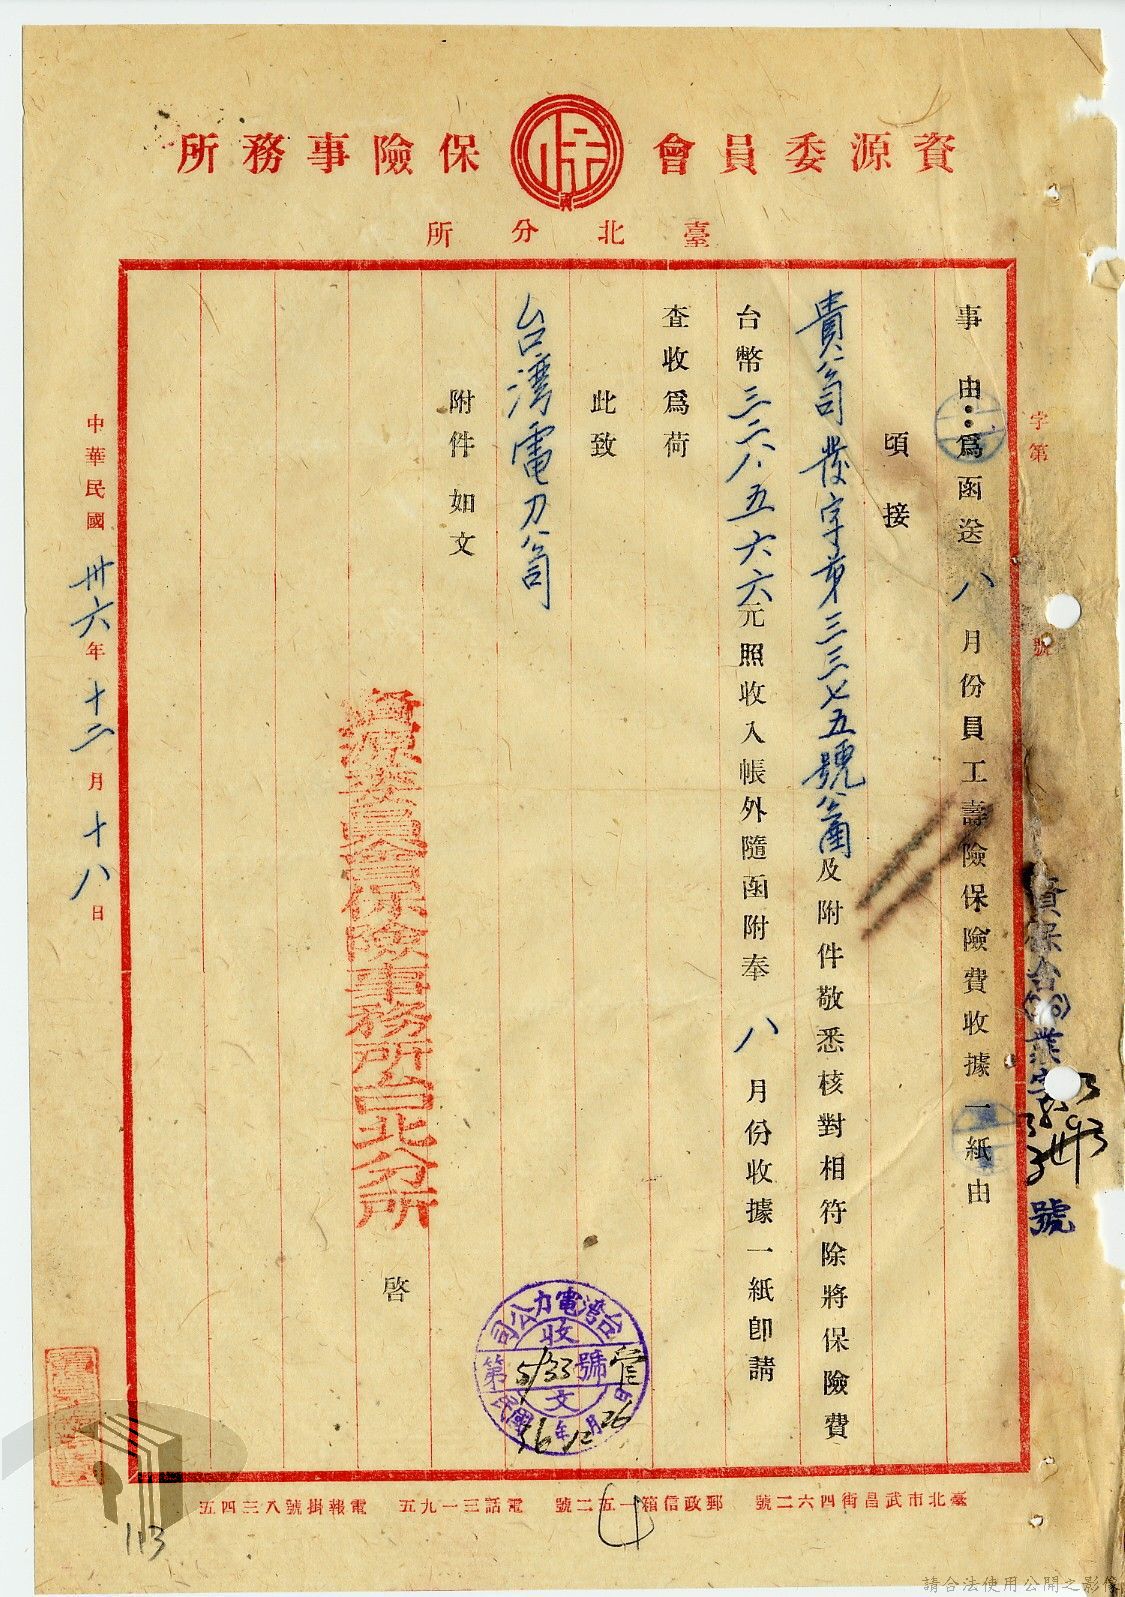 資源委員會 保 保險事務所
臺北分所
字第 號
資保台(36)業字 號
事由：為函送八月份員工壽險保險費收據一紙由
頃接
貴公司發字第三三七五號公函及附件敬悉核對相符除將保險費
台幣三二八.五六六元照收入帳外隨函附奉八月份收據一紙即請
查收為荷
此致
台灣電力公司
附件如文
資源委員會保險事務所台北分所
啓
中華民國卅六年十二月十八日
台灣電力公司
收文
第 5133 號
民國36年12月26日
臺北市武昌街四六二號 郵政信箱一五二號 電話三一九五 電報掛號八三四五
113
請合法使用公開之影像